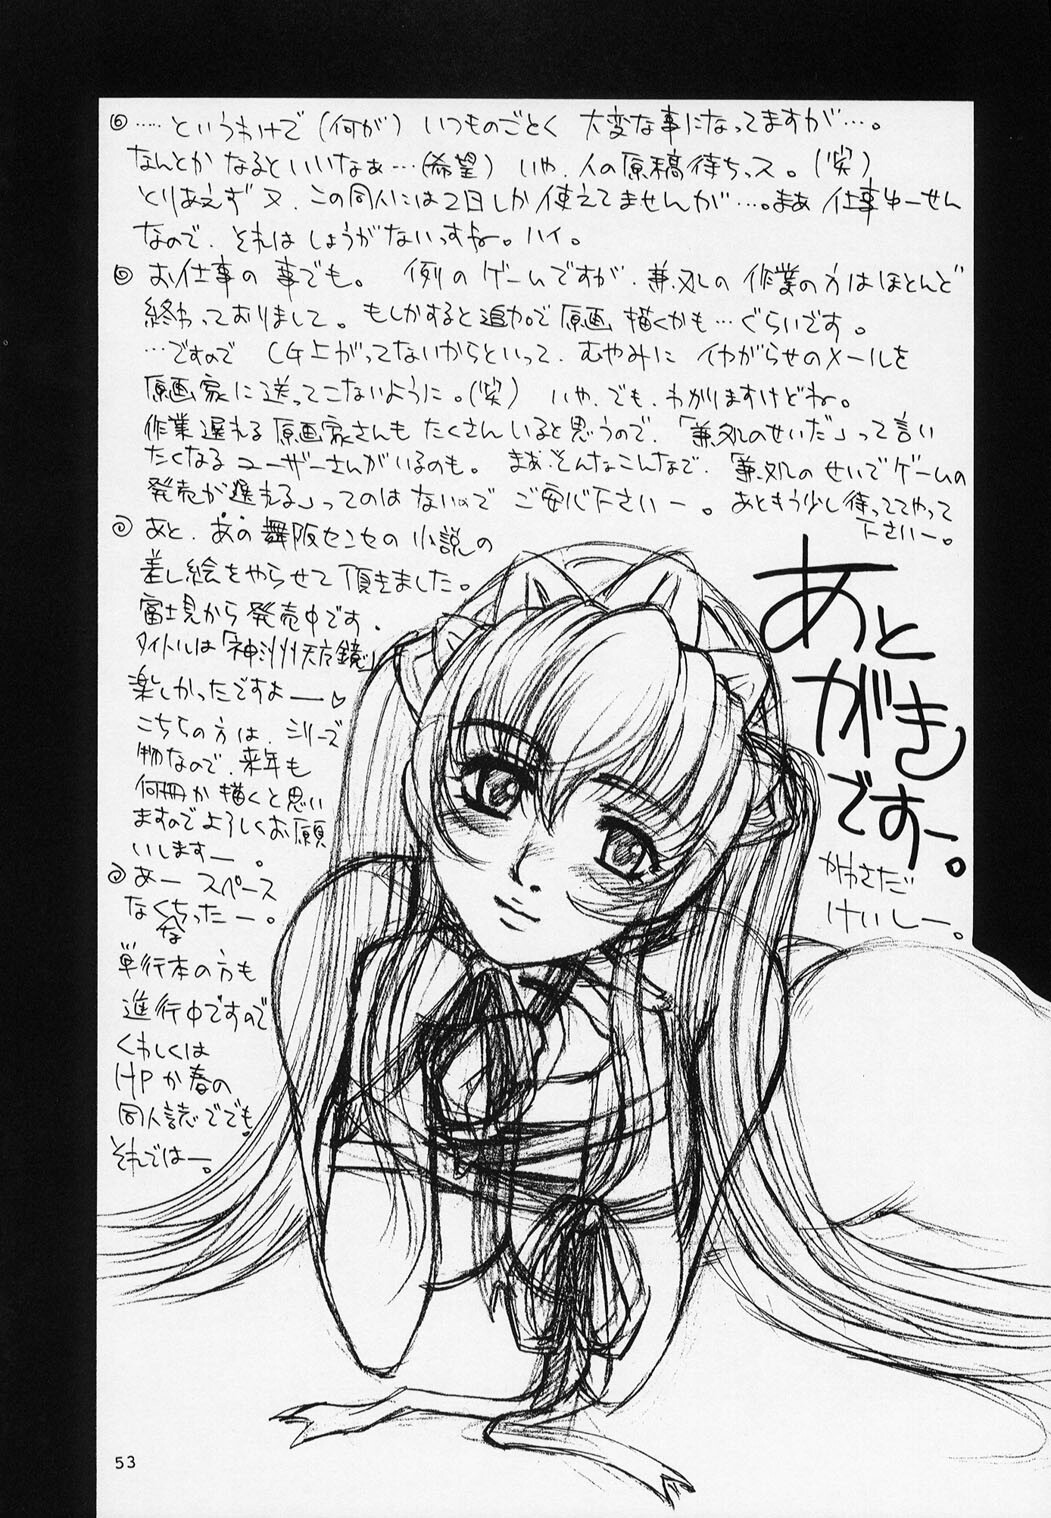 ……というわけで(何が)いつものごとく 大変な事になってますが…。
なんとか なるといいなぁ…(希望) いや、人の原稿待ちっス。(笑)
とりあえず 又、この同人には2日しか使えてませんが…。まあ 仕事ゆーせん
なので、それは しょうがないっすねー。ハイ。
お仕事の 事でも。 例の ゲームですが、兼処の 作業の方は ほとんど
終わっておりまして。もしかすると追加で 原画 描くかも…ぐらいです。
…ですので CG上がってないからといって、むやみに イヤがらせのメールを
原画家に送ってこないように。(笑) いや、でも、わかりますけどねー。
作業遅れる 原画家さんも たくさん いると思うので、「兼処のせいだ」って言い
たくなる ユーザーさんがいるのも。 まぁ、そんなこんなで、「兼処の せいでゲームの
発売が遅れる」ってのは ないので ご安心下さいー。あともう少し待っててやって
下さいー。
あと、あの 舞阪センセの 小説の
差し絵をやらせて 頂きました。
富士見から 発売中です。
タイトルは「神州天応鏡」
楽しかったですよー♡
こちらの方は、シリーズ
物なので、来年も
何冊か 描くと思い
ますので よろしくお願
いしますー。
あー スペース
なくなっちゃったー。
単行本の方も
進行中ですので
くわしくは
HPか春の
同人誌ででも。
それではー。
あと
がき
ですー。
かねさだ
けいしー。
53